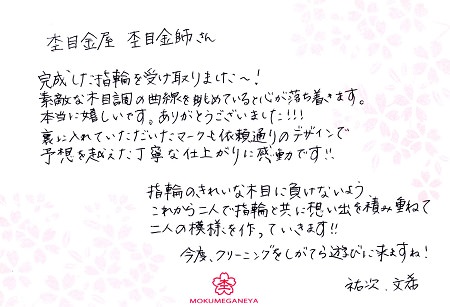 杢目金屋 杢目金師さん
完成した指輪を受け取りました〜!
素敵な木目調の曲線を眺めていると心が落ち着きます。
本当に嬉しいです。ありがとうございました!!!
裏に入れていただいたマークも依頼通りのデザインで
予想を越えた丁寧な仕上がりに感動です!!
指輪のきれいな木目に負けないよう、
これから二人で指輪と共に想い出を積み重ねて
二人の模様を作っていきます!!
今度、クリーニングをしがてら遊びに来ますね!
祐次、文希
杢
MOKUMEGANEYA